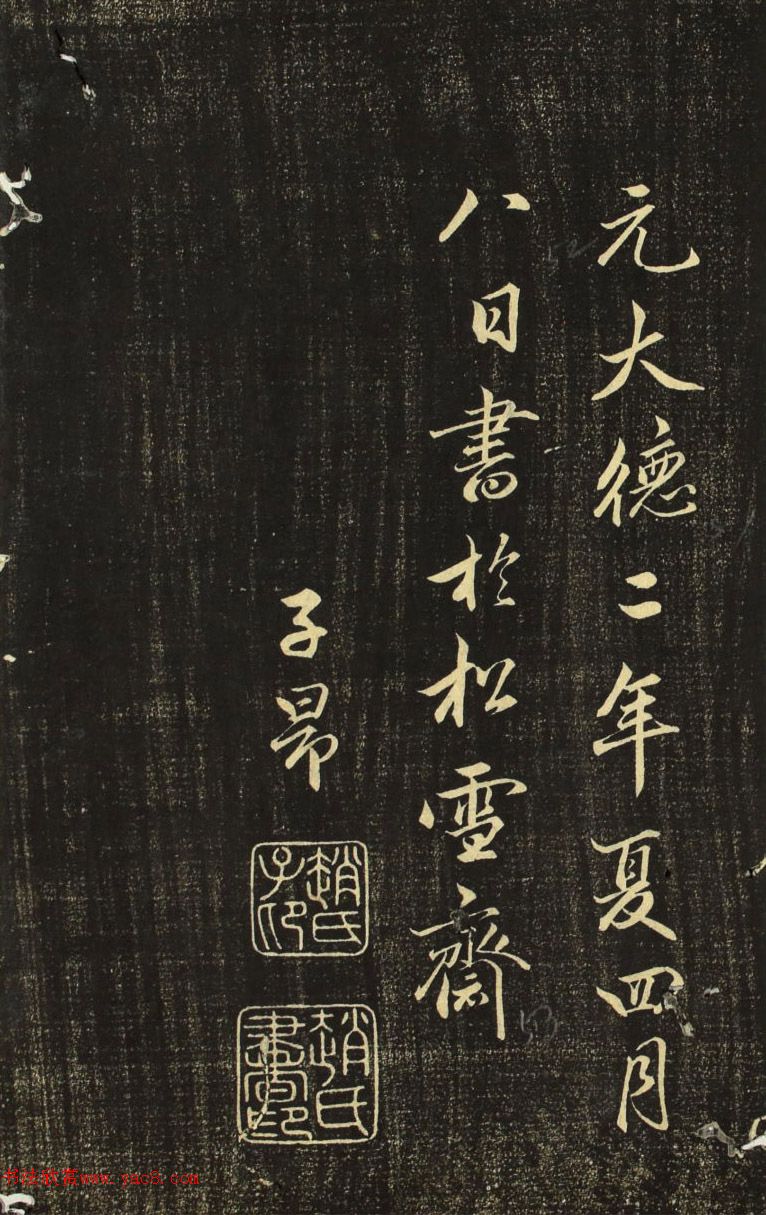 元大德二年夏四月
八日書於松雪齋
子昂
趙氏子印
趙氏書印
书法教育www.yac8.com